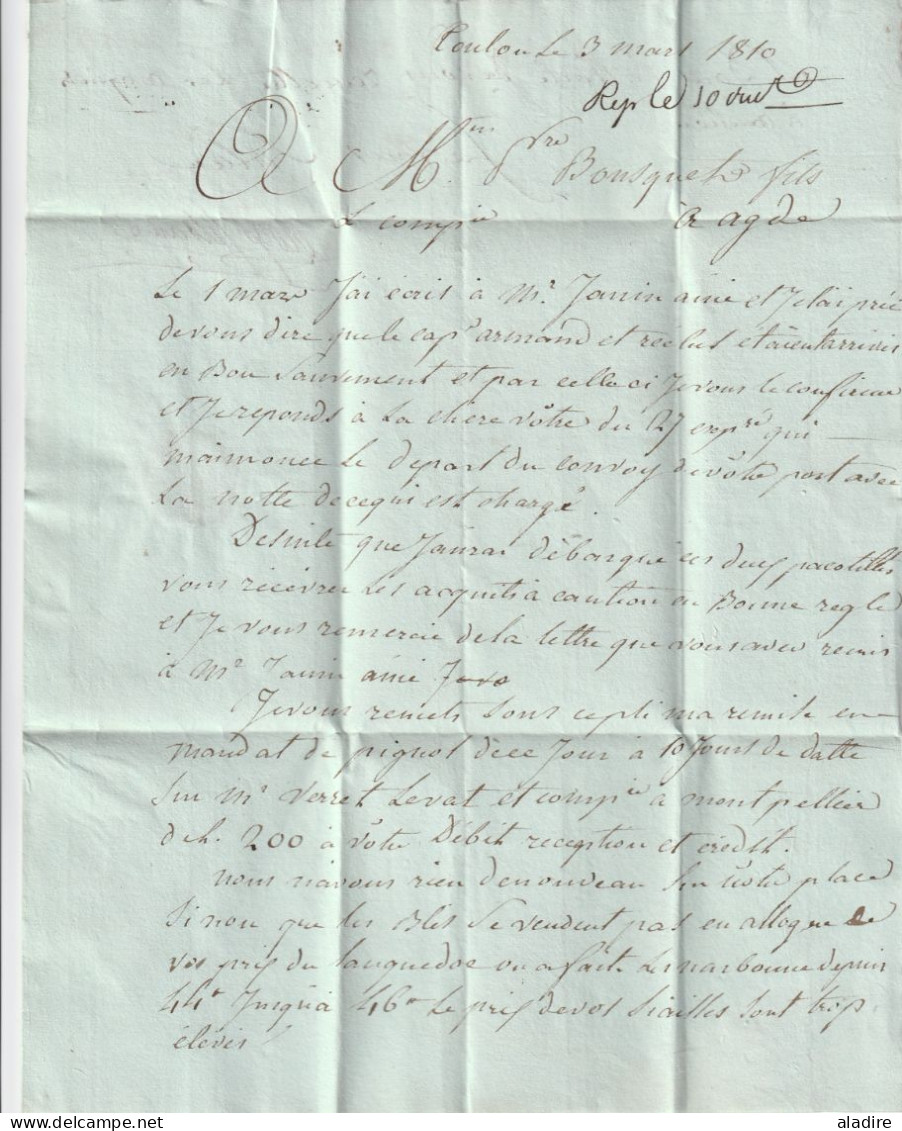 Toulon Le 3 mars 1810
Rep le 10 duct
A Mrs Pre Bousquet fils
& compie à agde
Le 1 mars J'ai écrit à Mr. Janin ainé et Je l'ai prié
de vous dire que le capne armand et réclus étaient arrivés
en Bon Sauvement et par celle ci Je vous le confirme
et Je reponds à La chere vôtre du 27 expré qui
m'annonce Le depart du convoy de vôtre port avec
La notte de ce qui est chargé.
De suite que J'aurai débarqué ces deux pacotilles
vous récévrez Les acquits à caution en Bonne regle
et Je vous remercie de la lettre que vous avez remis
à Mr Janin ainé
Je vous remets sous ce pli ma remise en
mandat de pignol de ce Jour à 10 Jours de datte
Sur Mr verret Levat et compie à montpellier
de £. 200 à vôtre Débit reception et crédit.
nous n'avons rien de nouveau Sur nôtre place
Si non que les Blés Se vendent pas en
vos prix du Languedoc on a fait Les narbonne depuis
44 Jusqu'à 46 Le prix de vos Siailles sont trop
élévés
aladire